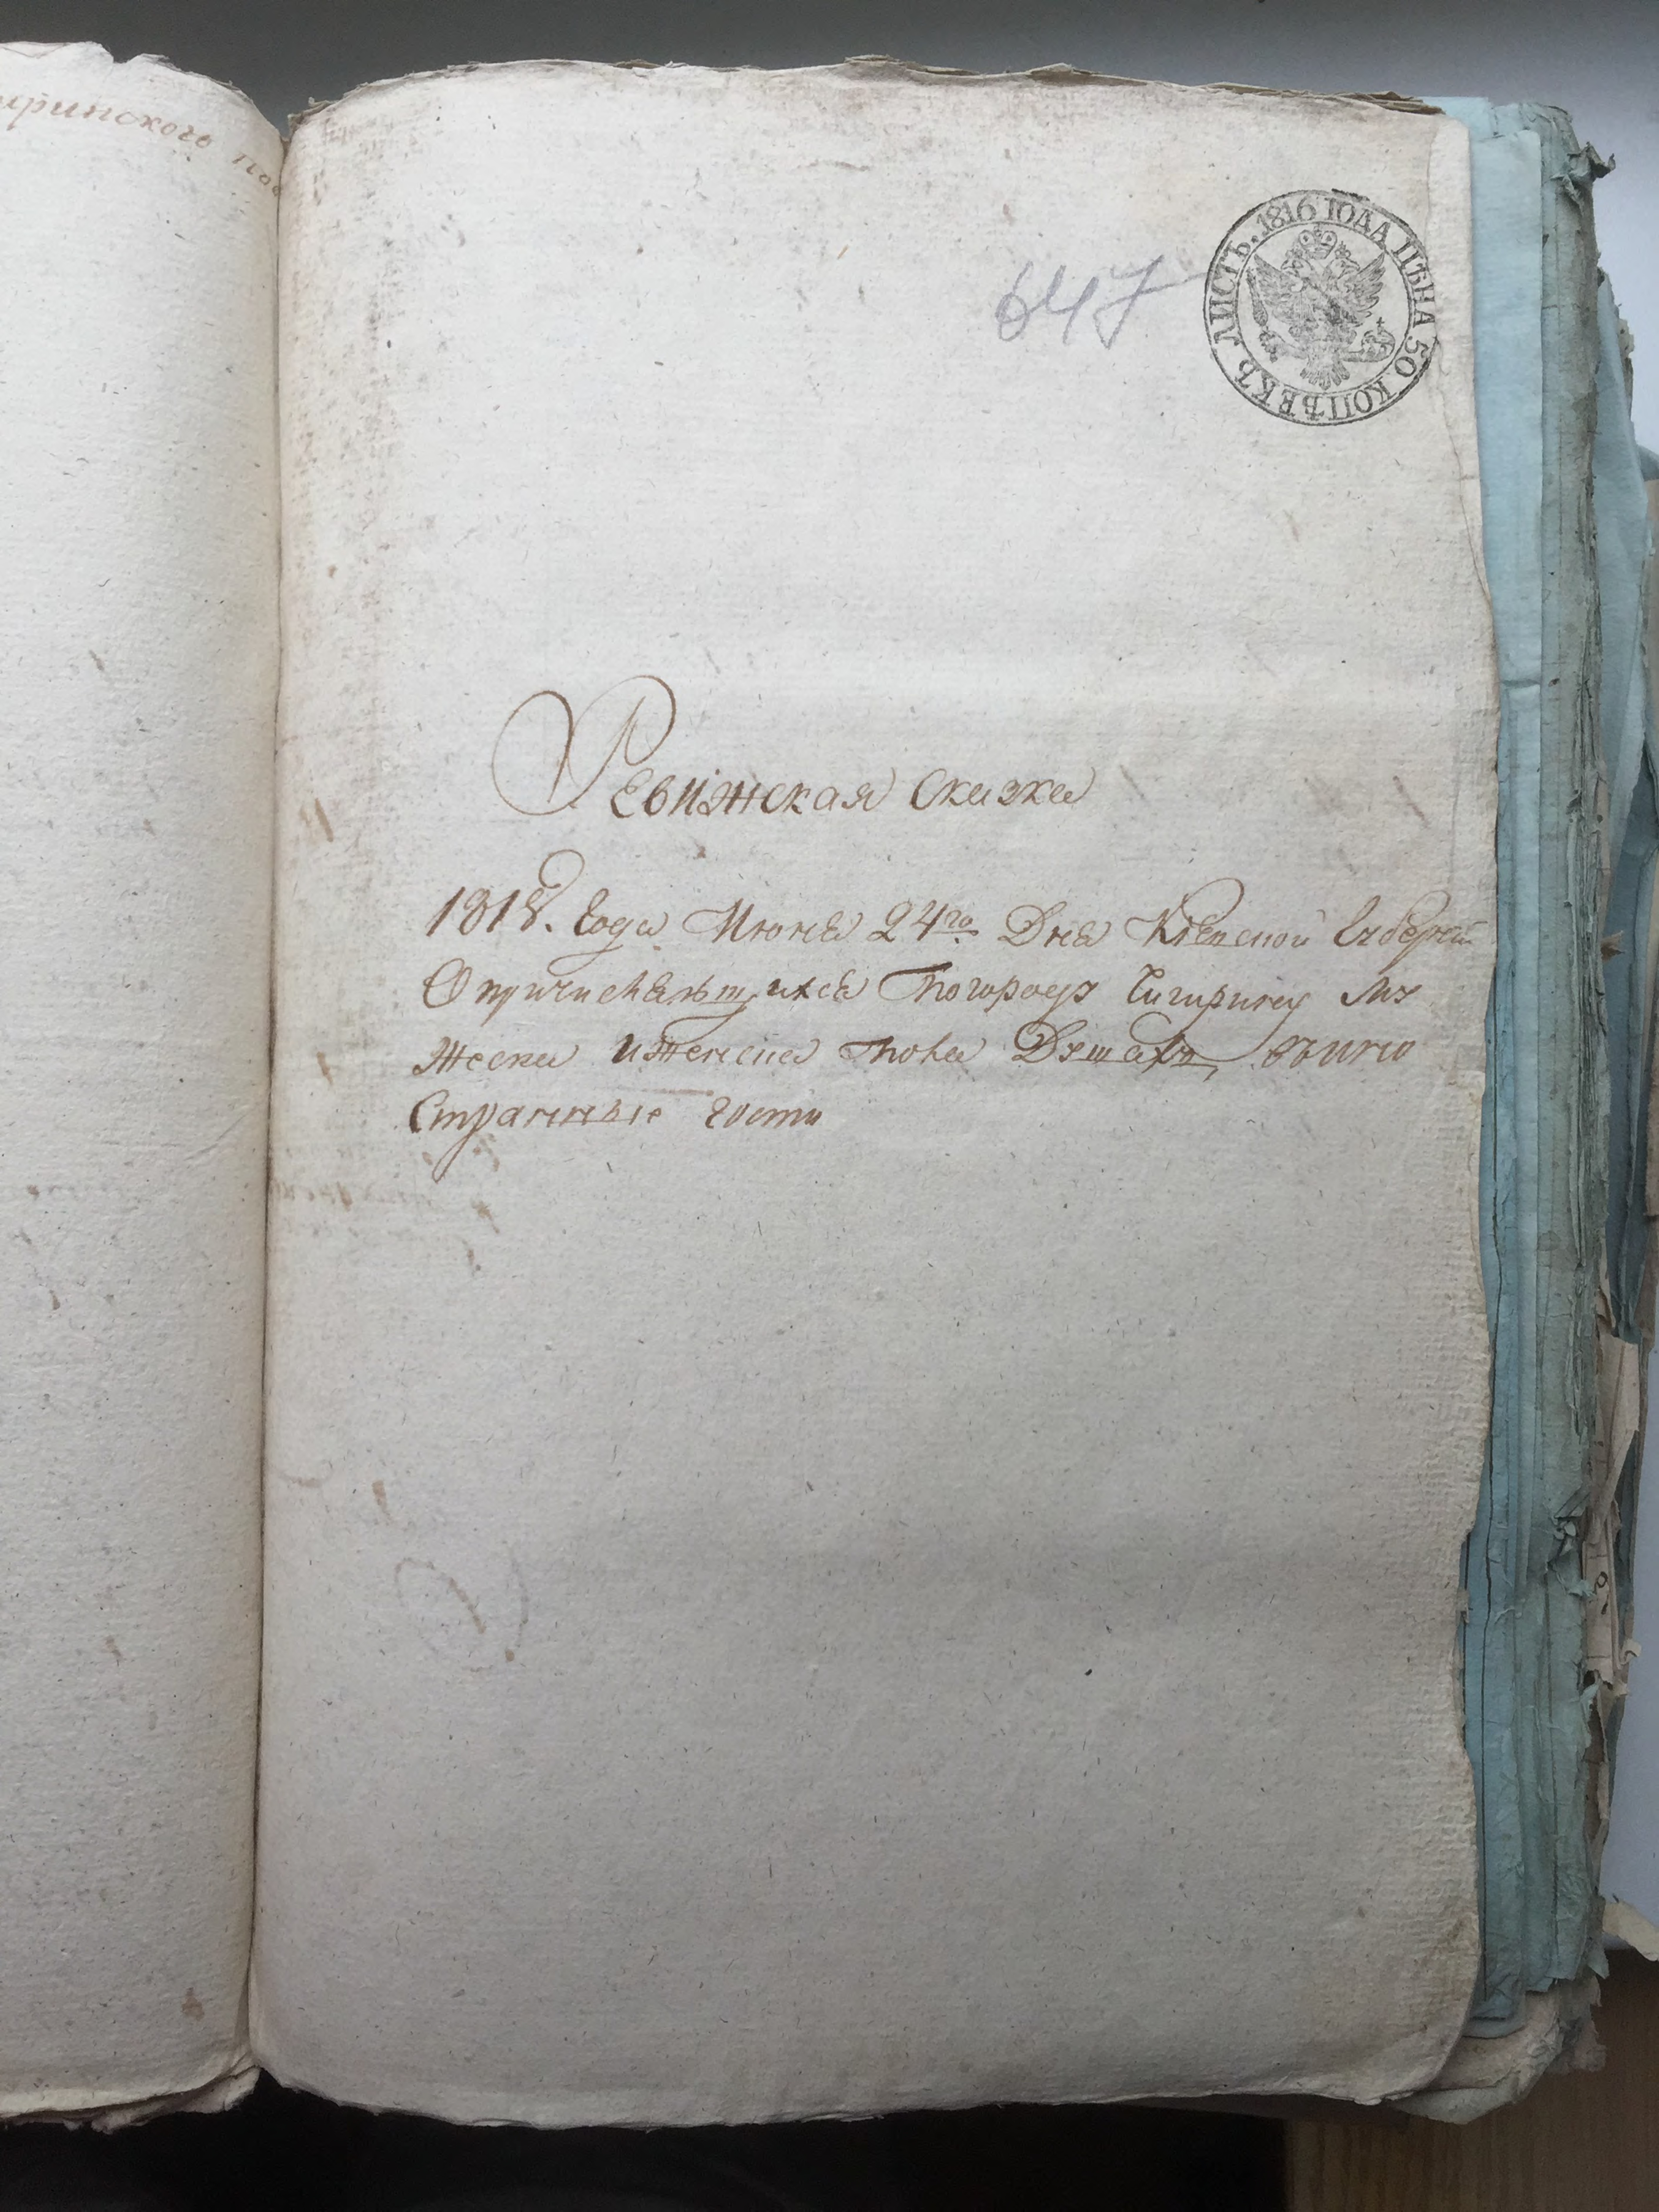 иринского пов
ЛИСТЪ. 1816 ГОДА ЦѢНА 50. КОПѢЕКЪ
647
Ревижская Сказка
1818. Года Июня 24го Дня Киевской Губернii
О причисляющихся погороду Чигирину му
жеска иженска пола Душахъ
Странные гости